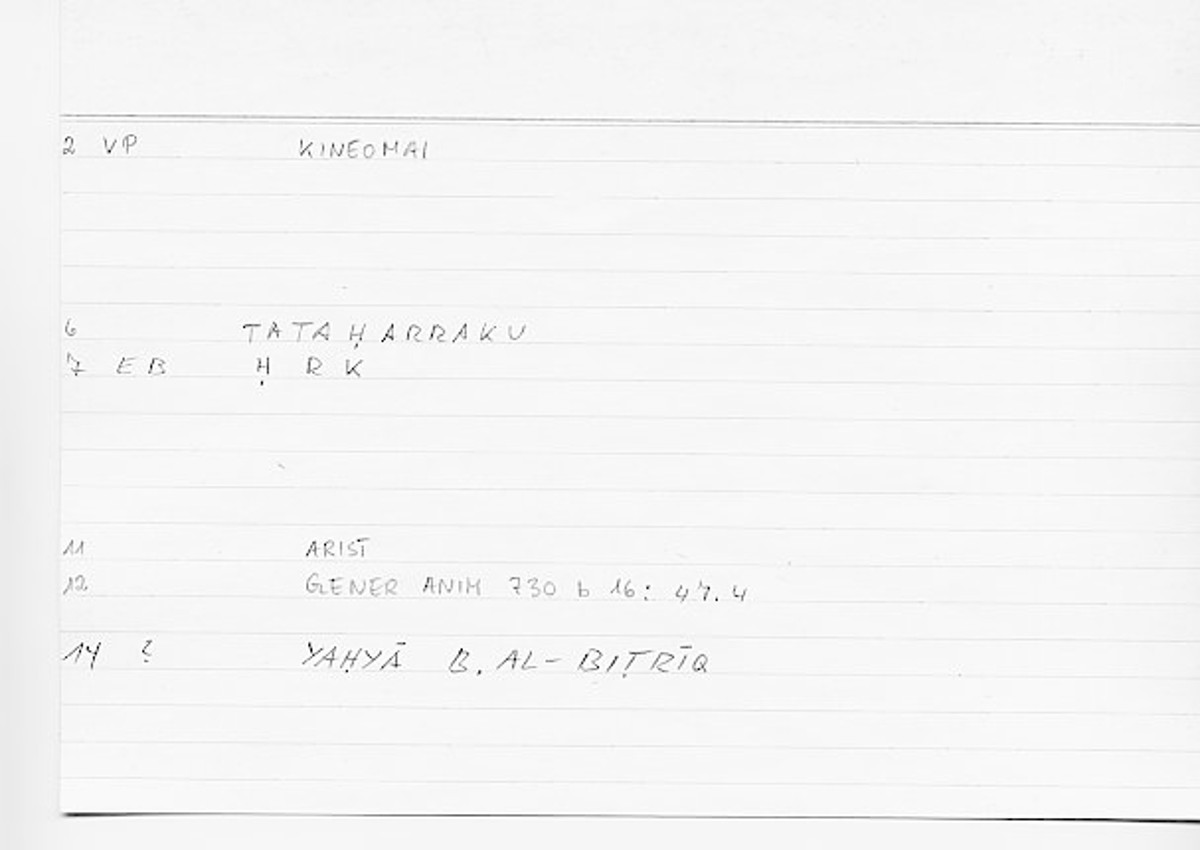 2 VP KINEOMAI
6 TATAḤARRAKU
7 EB Ḥ R K
11 ARIST
12 GENER ANIM 730 b 16: 47.4
14 ? YAḤYĀ B. AL-BIṬRĪQ